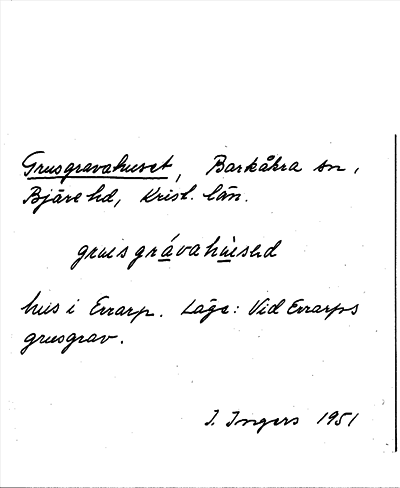 Grusgravahuset, Barkåkra sn,
Bjäre hd, Krist. län.
grusgrávahùsəd
hus i Errarp. Läge: Vid Errarps
grusgrav.
I. Ingers 1951